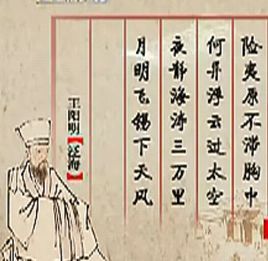 险夷原不滞胸中
何异浮云过太空
夜静海涛三万里
月明飞锡下天风
王阳明【泛海】